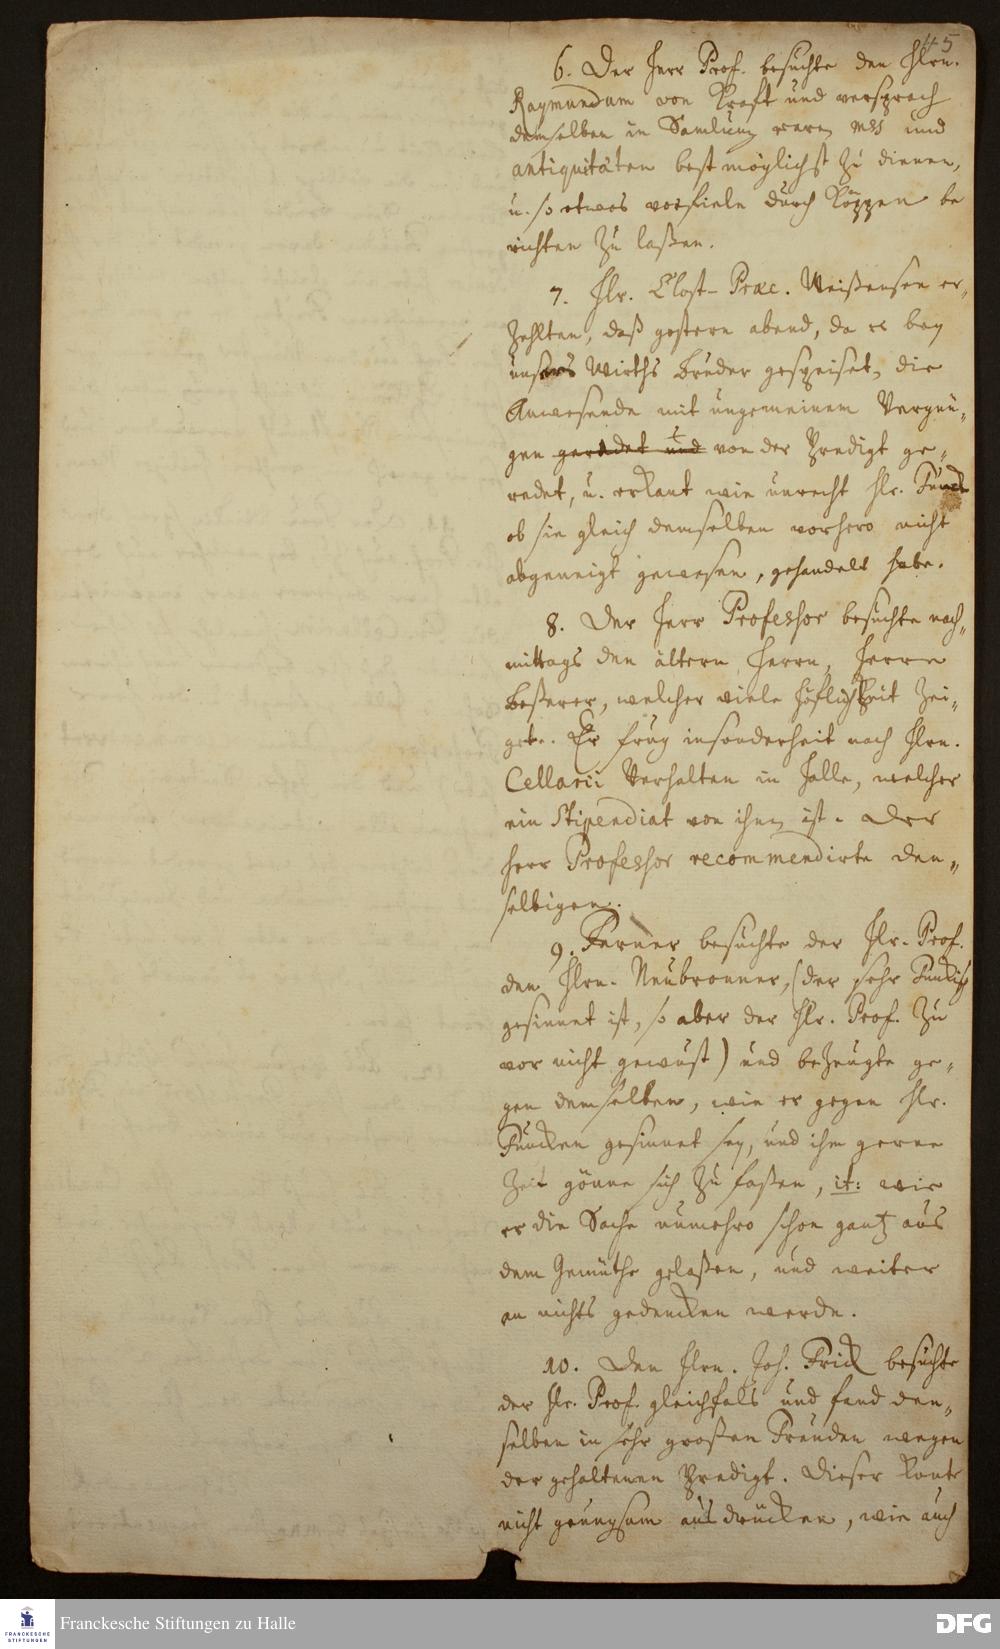 45
6. Der Herr Prof. besuchte den Hrn.
Raymundum von Krafft und versprach
demselben in Samlung raren mss und
antiquitäten best möglichst zu dienen,
u. so etwas vorfiele durch Köppen be
richten zu laßen.
7. Hr. Clost-Præc. Weißensee er„
zehlten, daß gestern abend, da er bey
unsers Wirths Bruder gespeiset, die
Anwesende mit ungemeinem Vergnü„
gen geredet und von der Predigt ge„
redet, u. erkant wie unrecht Hr. Funck
ob sie gleich demselben vorhero nicht
abgeneigt gewesen, gehandelt habe.
8. Der Herr Professor besuchte nach„
mittags den ältern Herrn, Herrn
Beßerer, welcher viele Höflichkeit zei„
gete. Er frug insonderheit nach Hrn.
Cellarii Verhalten in Halle, welcher
ein Stipendiat von ihm ist. Der
Herr Professor recommendirte den„
selbigen.
9. Ferner besuchte der Hr. Prof.
den Hrn. Neubronner, (der sehr Funckisch
gesinnet ist, so aber der Hr. Prof. zu
vor nicht gewust) und bezeugte ge„
gen demselben, wie er gegen Hr.
Funcken gesinnet sey, und ihm gerne
Zeit gönne sich zu faßen, it: wie
er die Sache nunmehro schon gantz aus
dem Gemüthe gelaßen, und weiter
an nichts gedencken werde.
10. Den Hrn. Joh. Frick besuchte
der Hr. Prof. gleichfals und fand den„
selben in sehr großen Freuden wegen
der gehaltenen Predigt. Dieser konte
nicht genugsam ausdrücken, wie auch
FRANCKESCHE
STIFTUNGEN
Franckesche Stiftungen zu Halle
DFG